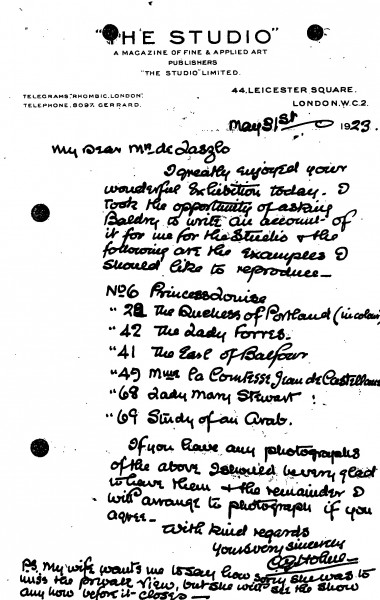 "THE STUDIO"
A MAGAZINE OF FINE & APPLIED ART
PUBLISHERS
"THE STUDIO" LIMITED.
TELEGRAMS "RHOMBIC, LONDON"
TELEPHONE. 8097. GERRARD.
44, LEICESTER SQUARE.
LONDON. W.C.2.
May 31st 1923.
My Dear Mr. de Laszlo
I greatly enjoyed your
wonderful Exhibition today. I
took the opportunity of asking
Baldry to write an account of
it for me for the Studio & the
following are the examples I
should like to reproduce—
No 6 Princess Louise
" 22 The Duchess of Portland (in colour)
" 42 The Lady Forres.
" 41 The Earl of Balfour
" 49 Mme la Comtesse Jean de Castellane
" 68 Lady Mary Stewart
" 69 Study of an Arab.
If you have any photographs
of the above I should be very glad
to have them & the remainder I
will arrange to photograph if you
agree—
With kind regards
Yours very sincerely
Holme
P.S. My wife wants me to say how sorry she was to
miss the private view, but she will see the show
any how before it closes—